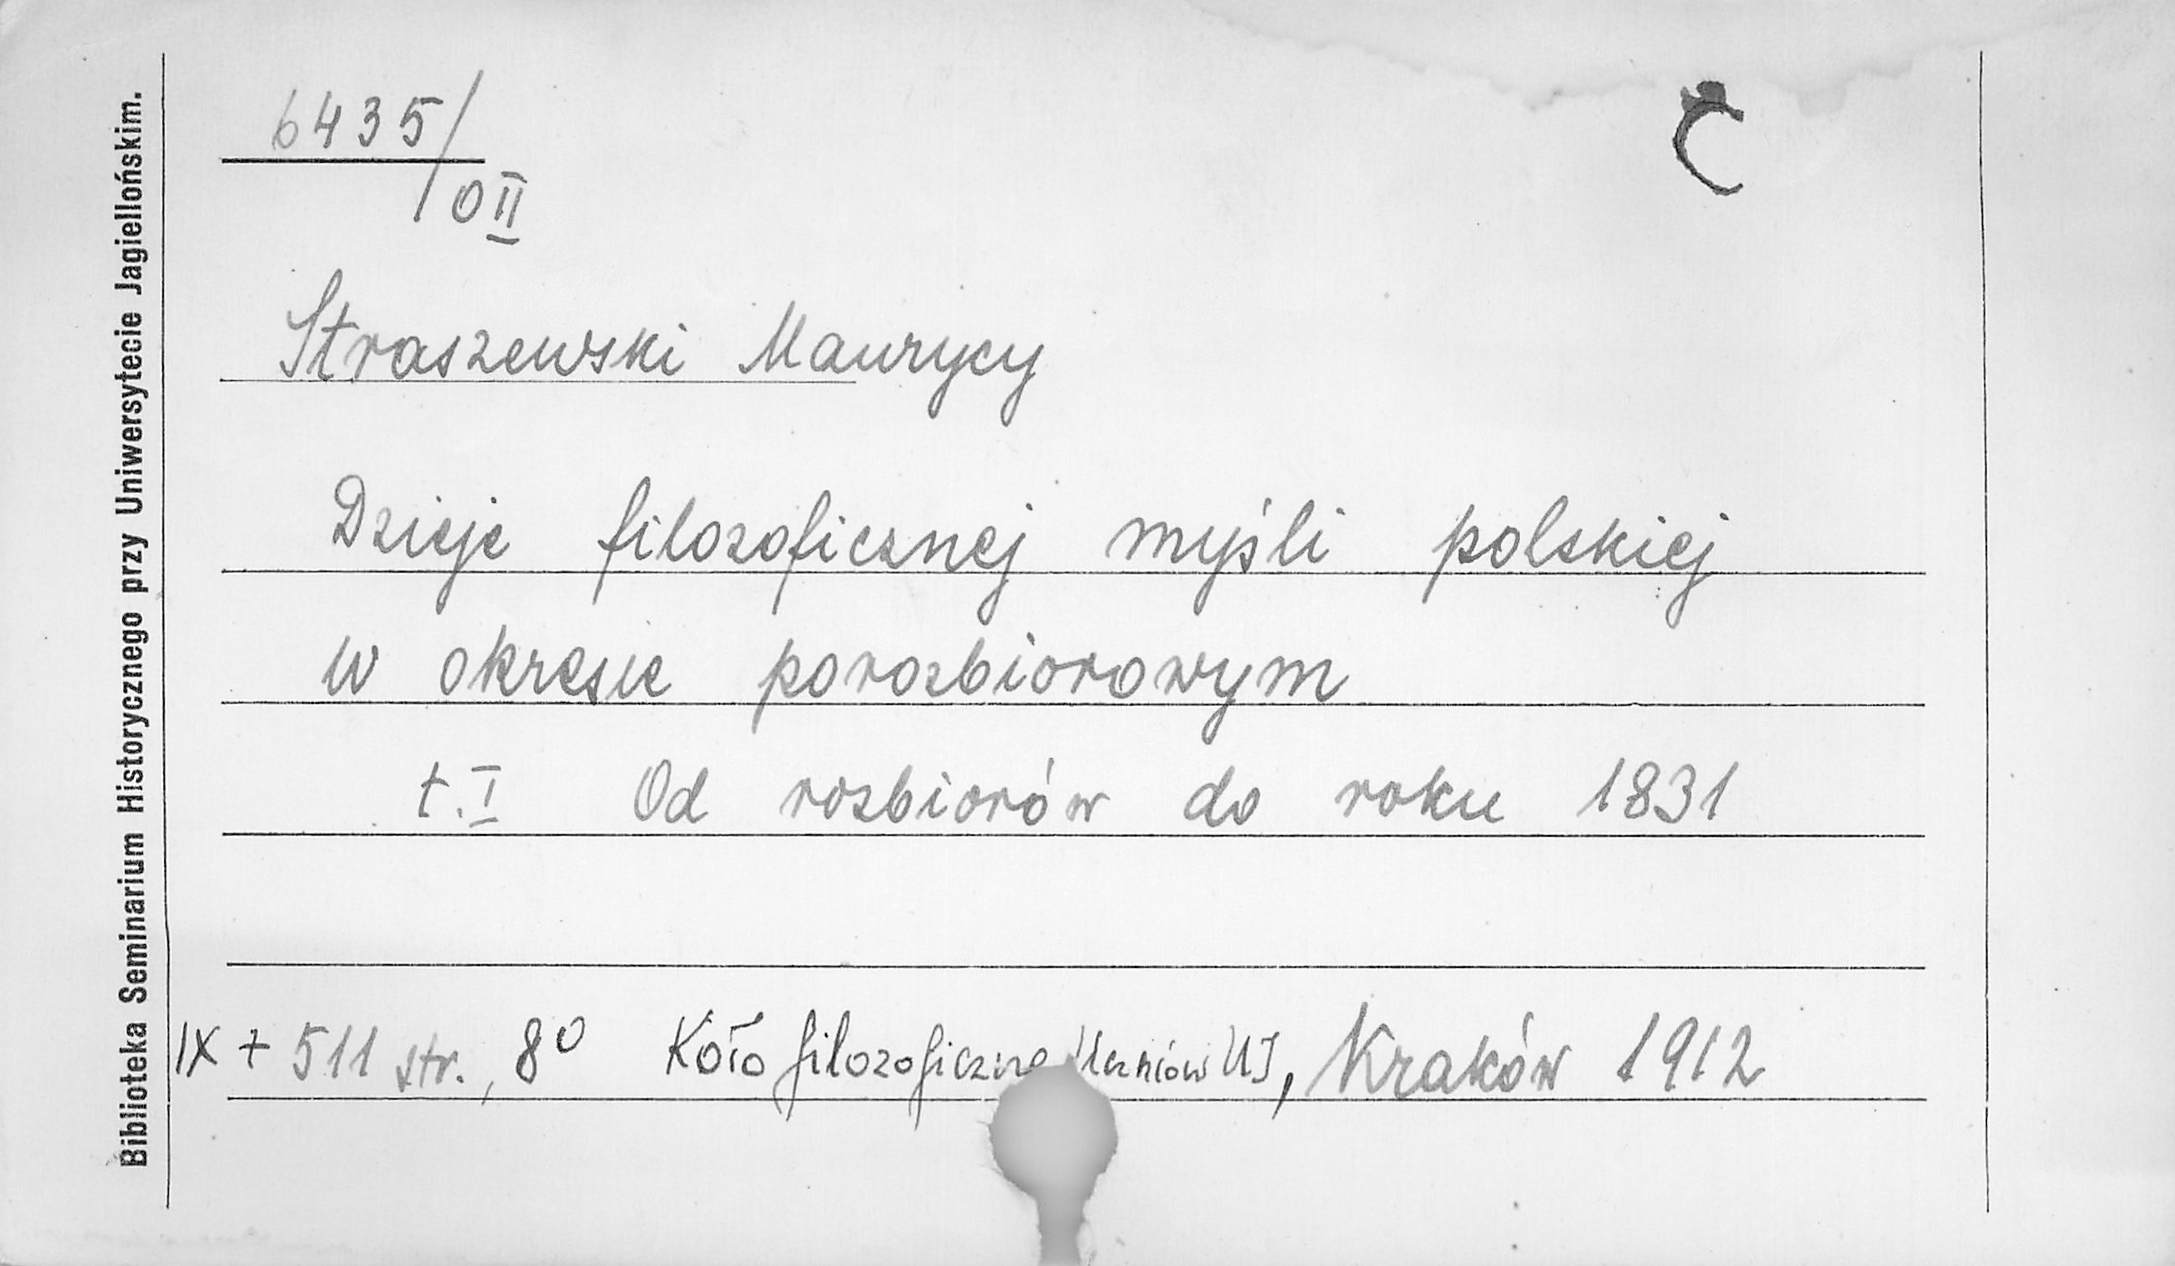 Biblioteka Seminarium Historycznego przy Uniwersytecie Jagiellońskim.
6435/OII
C
Straszewski Maurycy
Dzieje filozoficznej myśli polskiej
w okresie porozbiorowym
t. I Od rozbiorów do roku 1831
IX + 511 str., 8° Koło filozoficzne Uczniów UJ, Kraków 1912